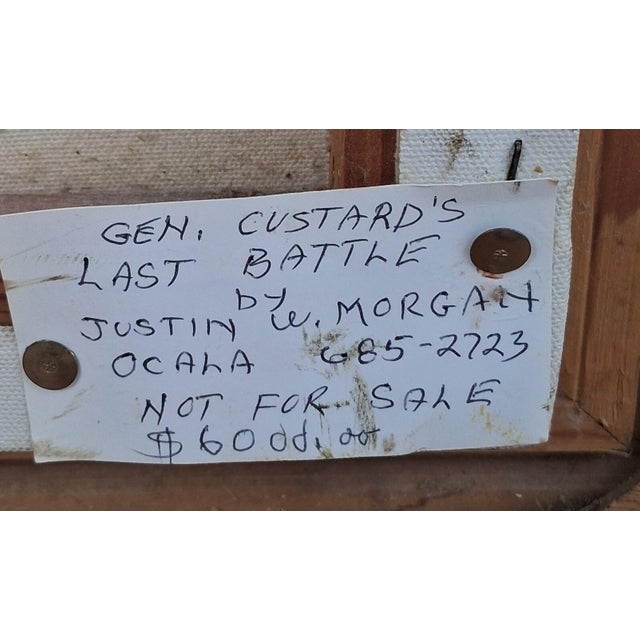 GEN. CUSTARD'S
LAST BATTLE
by
JUSTIN W. MORGAN
OCALA 685-2723
NOT FOR SALE
$6000.00